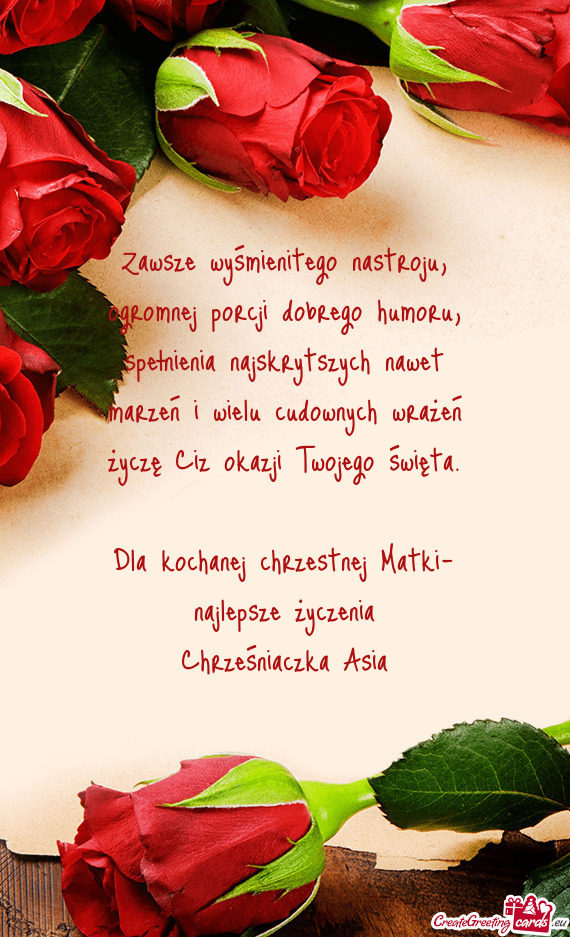 Zawsze wyśmienitego nastroju,
ogromnej porcji dobrego humoru,
spełnienia najskrytszych nawet
marzeń i wielu cudownych wrażeń
życzę Ciz okazji Twojego święta.
Dla kochanej chrzestnej Matki-
najlepsze życzenia
Chrześniaczka Asia
CreateGreeting cards .eu